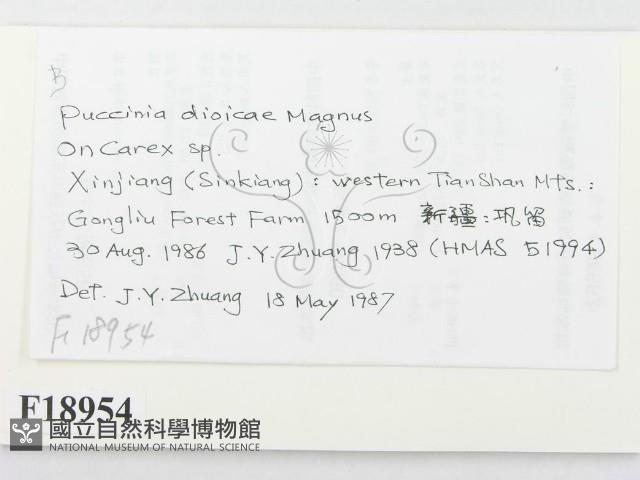 B
Puccinia dioicae Magnus
On Carex sp.
Xinjiang (Sinkiang): western TianShan Mts.:
Gongliu Forest Farm 1500m 新疆:巩留
30 Aug. 1986 J.Y. Zhuang 1938 (HMAS 51994)
Det. J.Y. Zhuang 18 May 1987
F18954
F18954
國立自然科學博物館
NATIONAL MUSEUM OF NATURAL SCIENCE